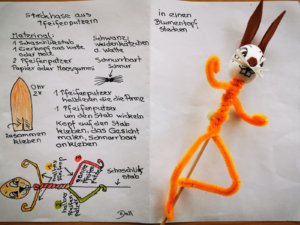 Steckhase aus
Pfeifenputzern
Material:
1 Schaschlikstab
1 Eierkopf aus Watte
oder Holz
2 Pfeifenputzer
Papier oder Moosgummi
Schwanz:
Weidenkätzchen
o. Watte
Schnurrbart
Schnur
Ohr
2x
zusammen
kleben
1 Pfeifenputzer
halbieren für die Arme
1 Pfeifenputzer
um den Stab wickeln
Kopf auf den Stab
kleben, das Gesicht
malen, Schnurrbart
ankleben
Schaschlik
stab
in einen
Blumentopf
stecken